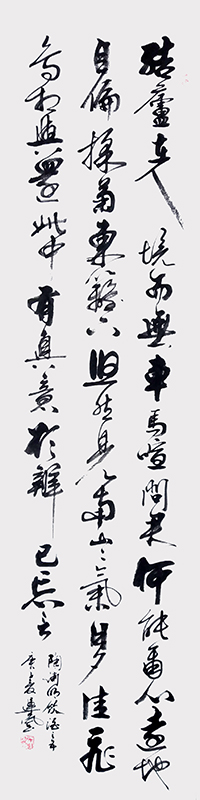 结廬在人境而無車馬喧問君何能爾心遠地
自偏採菊東籬下悠然見南山々氣日夕佳飛
鳥相與還此中有真意欲辨已忘言
陶渊明饮酒